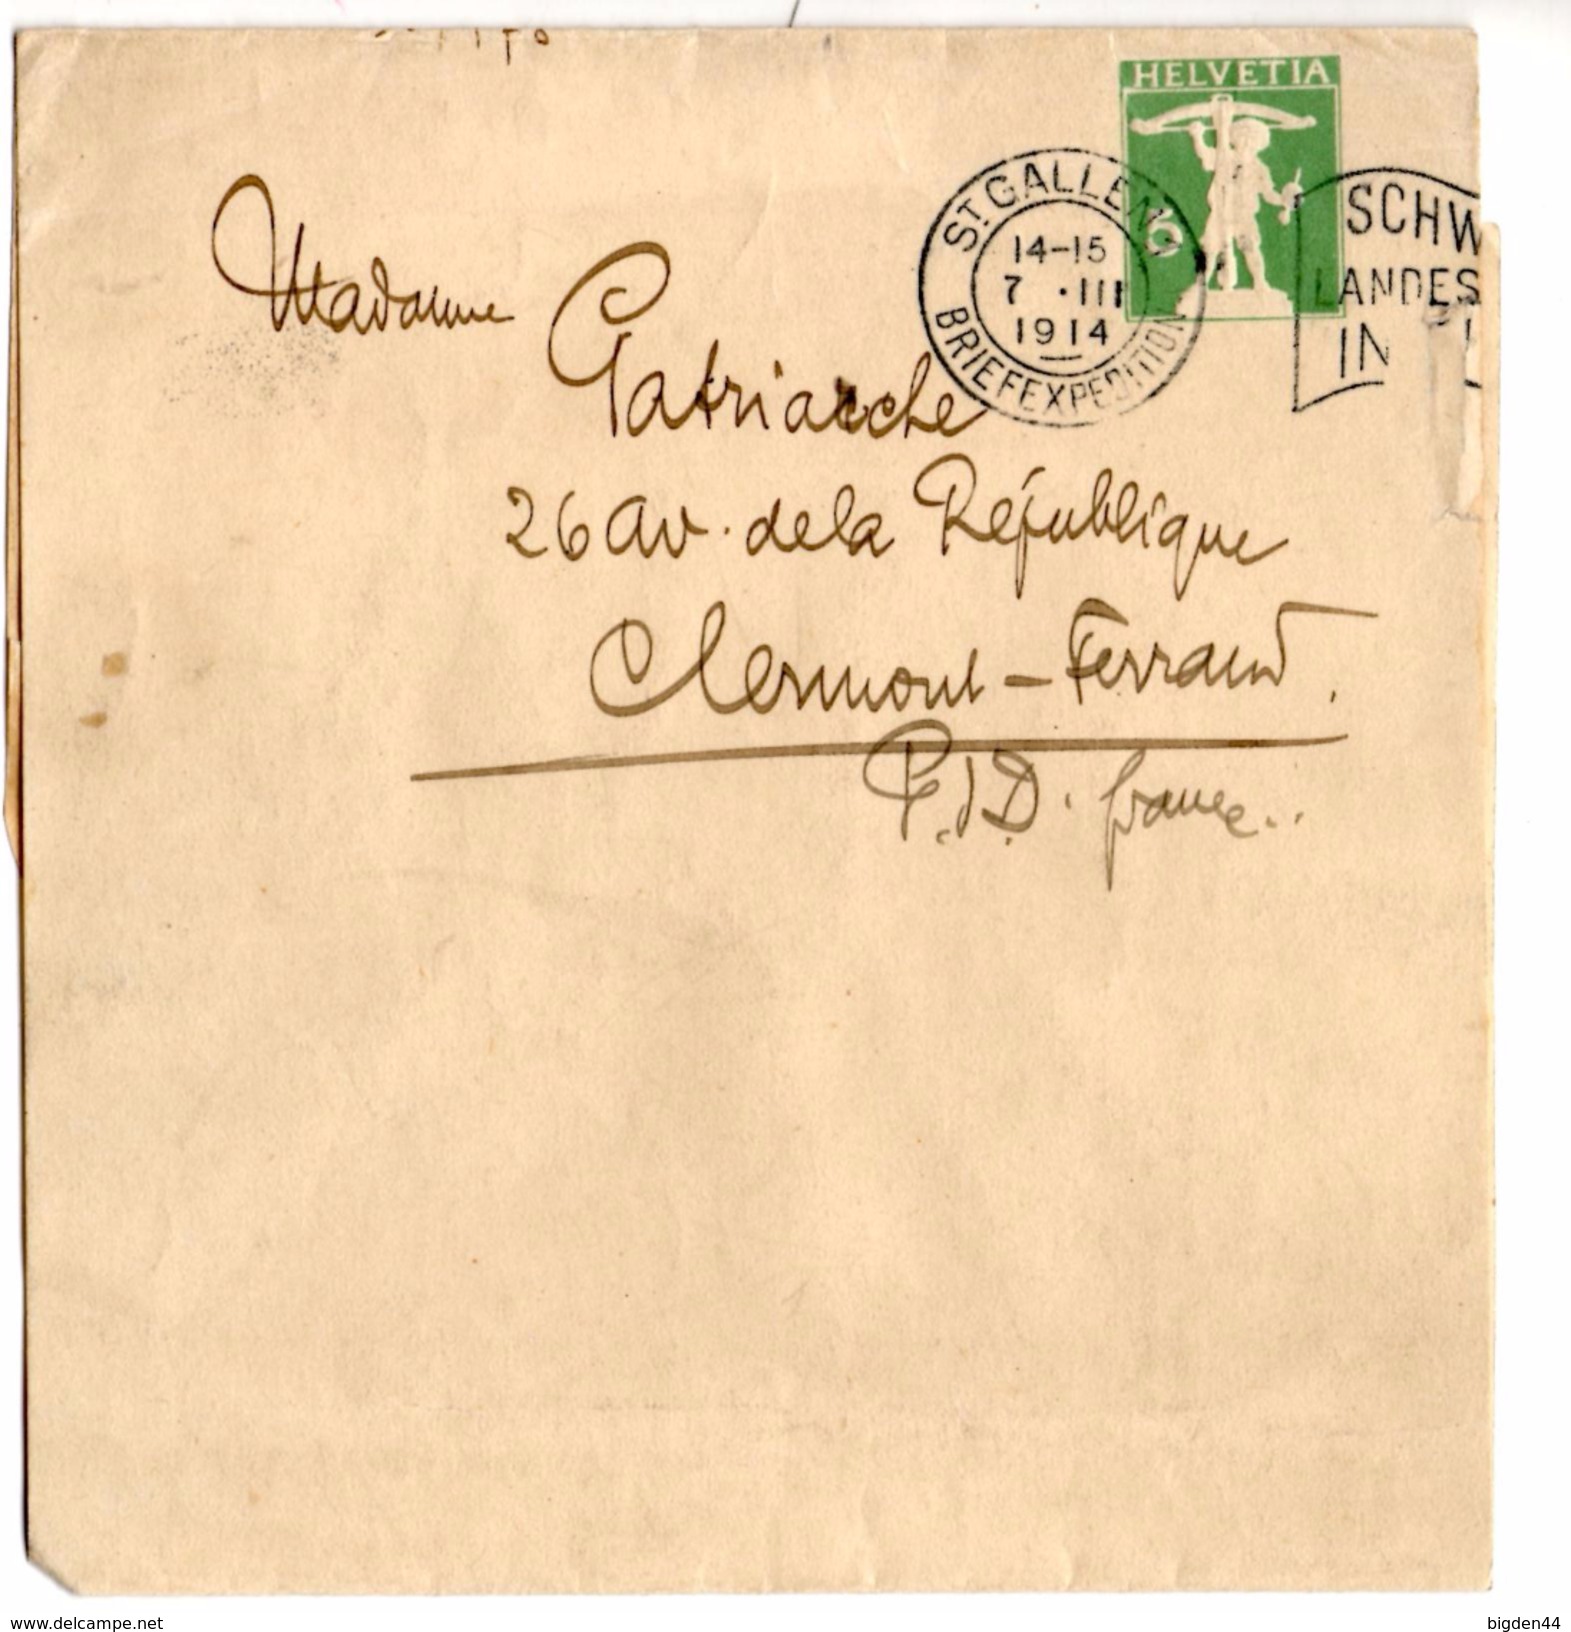 HELVETIA
ST. GALLEN
14-15
7 ·III
1914
BRIEFEXPEDITION
SCHW
LANDES
IN
Madame
Patriarche
26 av. de la République
Clermont-Ferrand.
P. d D. france..
www.delcampe.net
bigden44